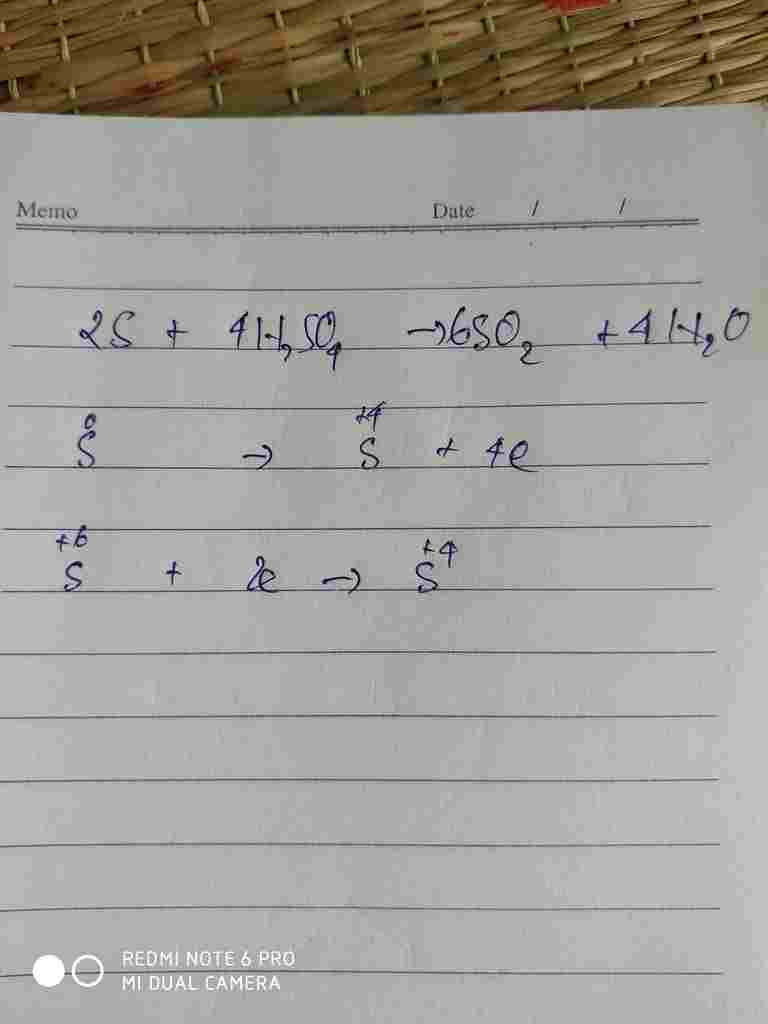 Memo Date / /
2S + 4H₂SO₄ → 6SO₂ + 4H₂O
S⁰ → S⁺⁴ + 4e
S⁺⁶ + 2e → S⁺⁴
REDMI NOTE 6 PRO
MI DUAL CAMERA